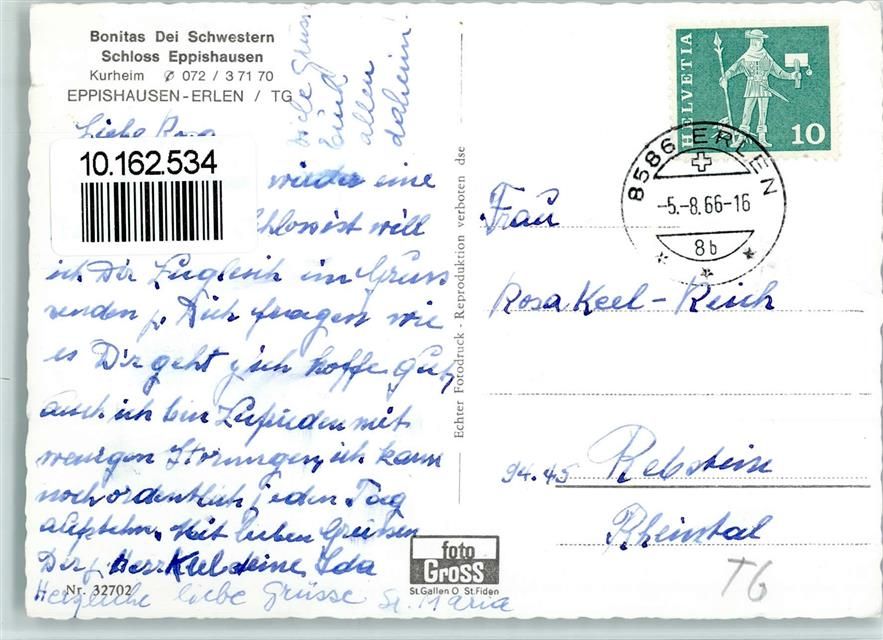 Bonitas Dei Schwestern
Schloss Eppishausen
Kurheim ✆ 072 / 3 71 70
EPPISHAUSEN-ERLEN / TG
viele Grüsse
Euch
allen
daheim!
Liebe Rosa
10.162.534
wieder eine
will
ich Dir Zugleich im Gruss
senden u. Dich fragen wie
es Dir geht, ich hoffe gut,
auch ich bin Zufrieden mit
wenigen Störungen, ich kann
noch ordentlich jeden Tag
aufstehn. Mit lieben Grüssen
Dir, Herr Keel deine Ida
Nr. 32702
Herzliche liebe Grüsse Sr. Maria
Echter Fotodruck - Reproduktion verboten dse
foto
GROSS
St.Gallen O St.Fiden
HELVETIA
10
8586 ERLEN
-5.-8.66-16
8b
Frau
Rosa Keel-Reich
94.45 Rebstein
Rheintal
TG